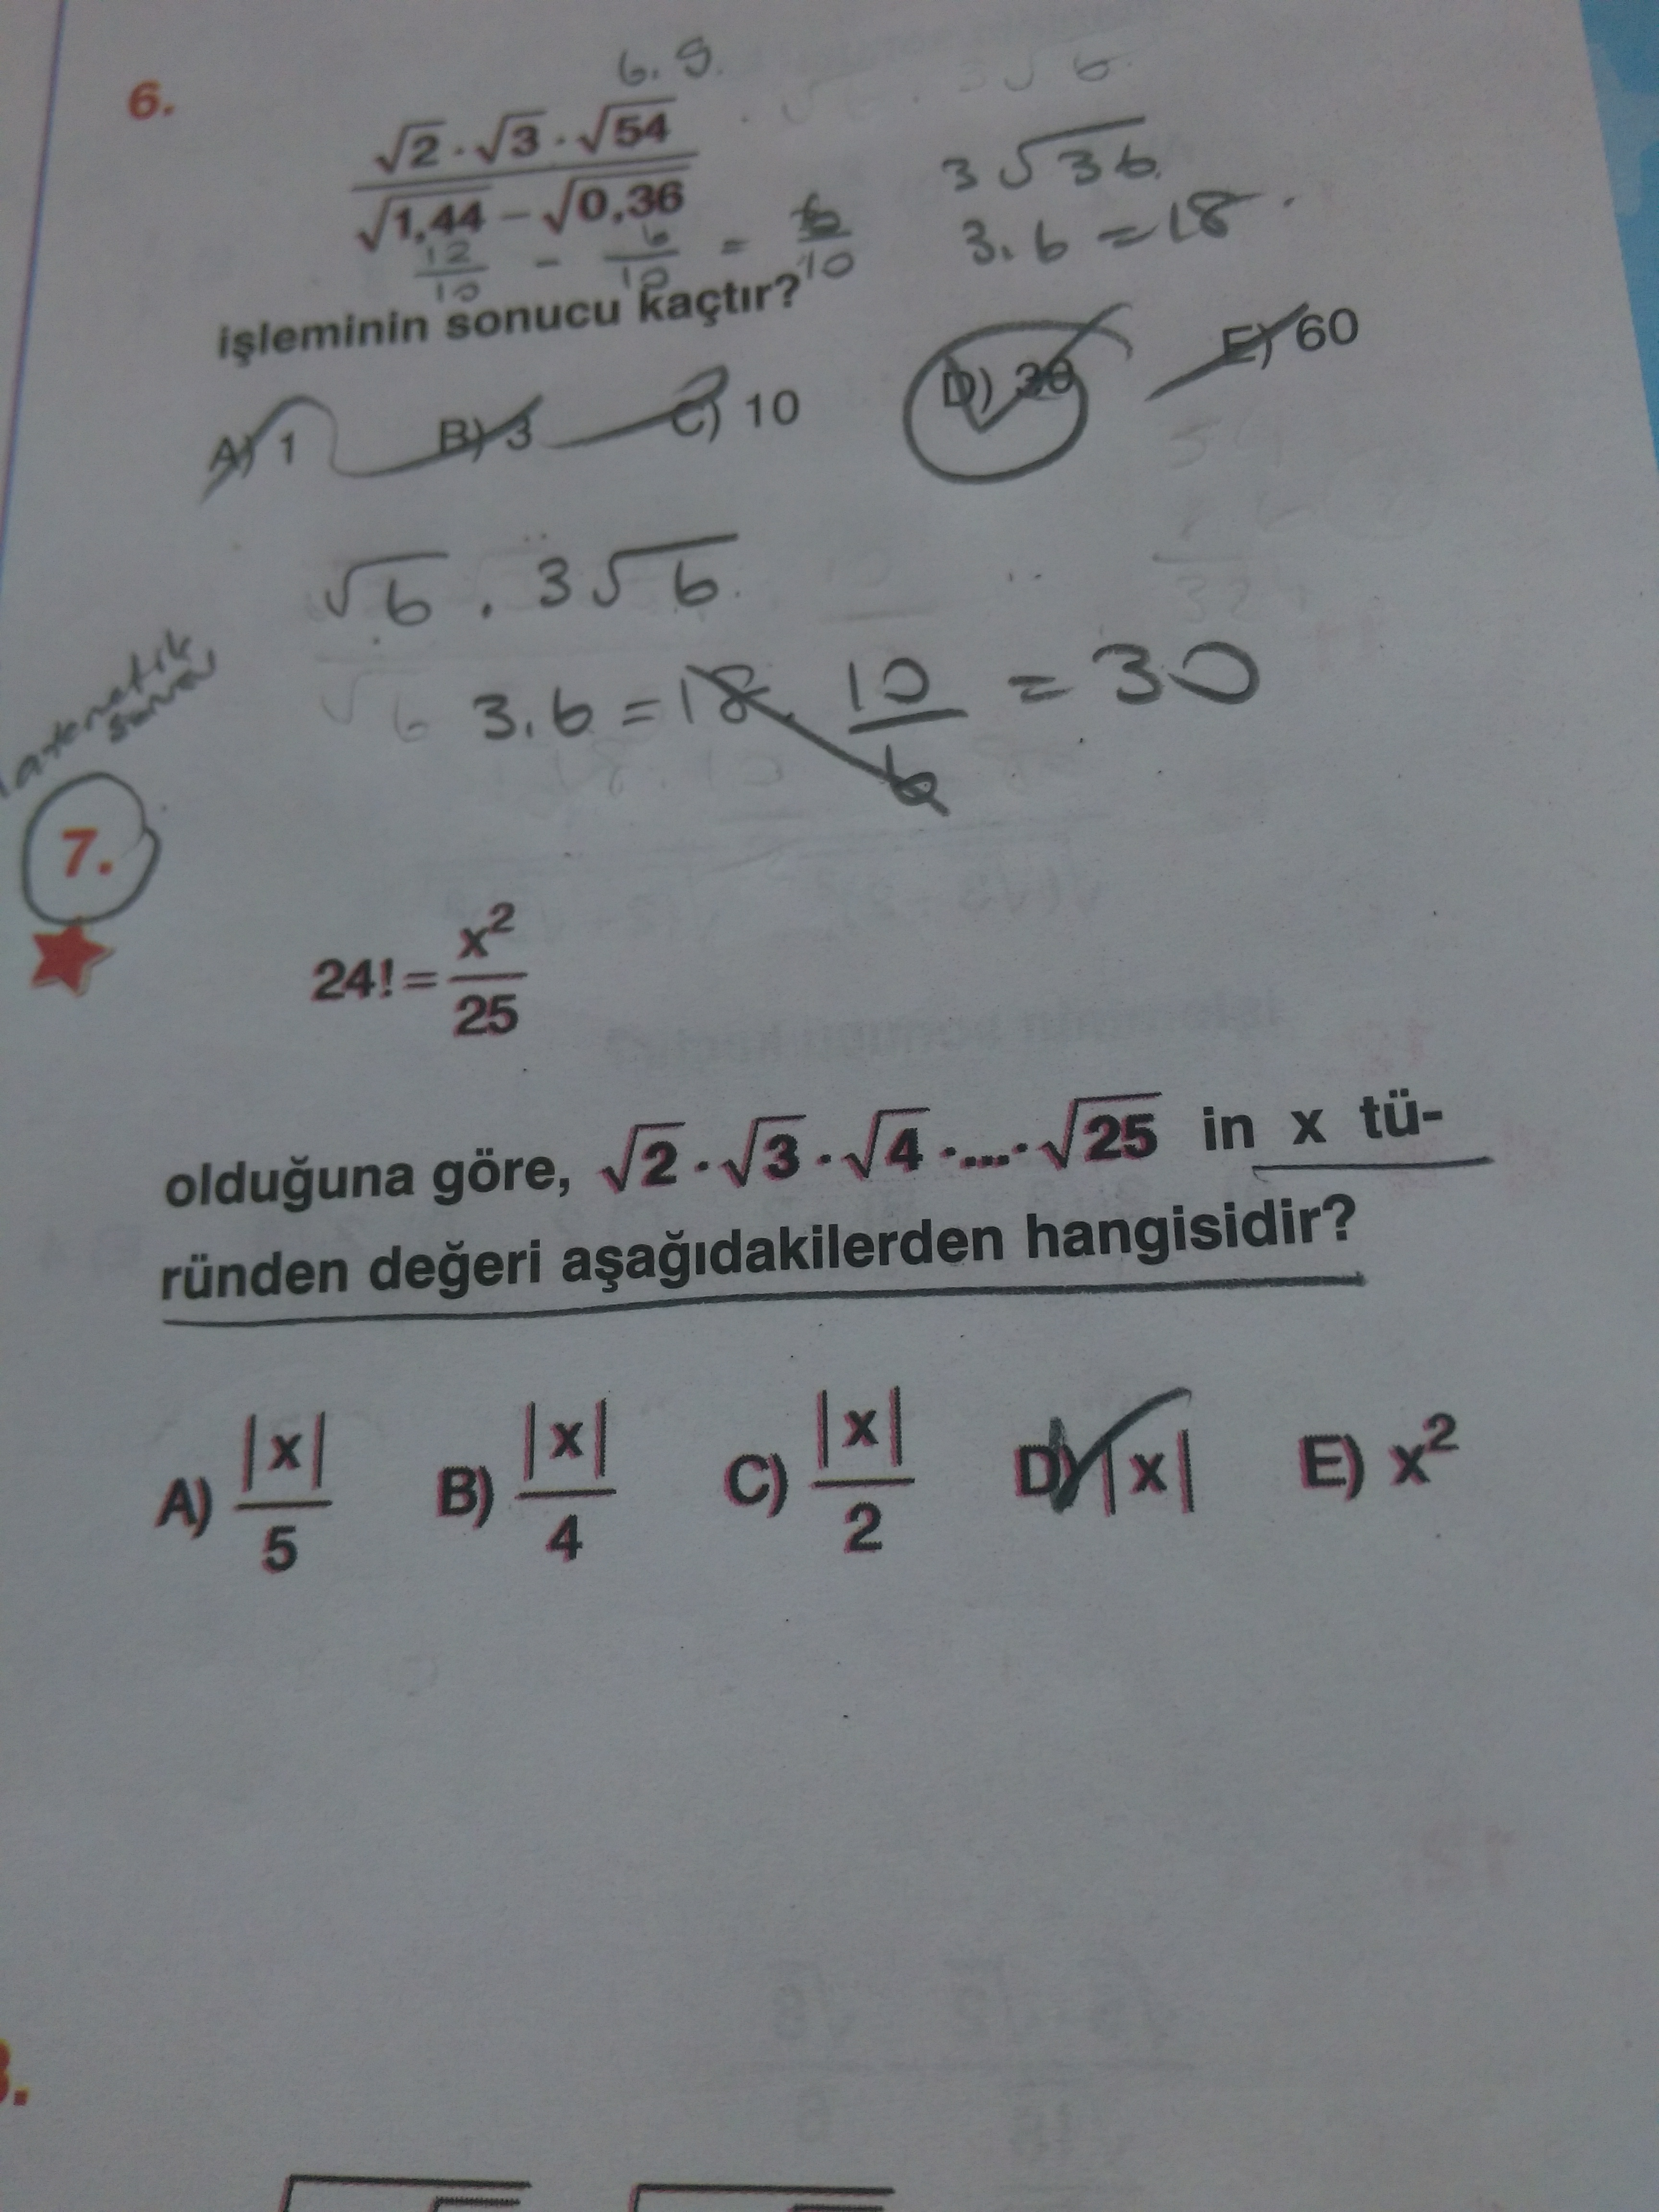 6. 6.9.
√2·√3·√54 / √1,44 − √0,36
12/10 - 6/10 = 6/10
3√36.
3.6 = 18
işleminin sonucu kaçtır?
A) 1 B) 3 C) 10 D) 30 E) 60
√6 . 3√6
3.6 = 18 . 10/6 = 30
matematik
sorusu
7.
24! = x²/25
olduğuna göre, √2·√3·√4·....·√25 in x tü-
ründen değeri aşağıdakilerden hangisidir?
A) |x|/5 B) |x|/4 C) |x|/2 D) |x| E) x²